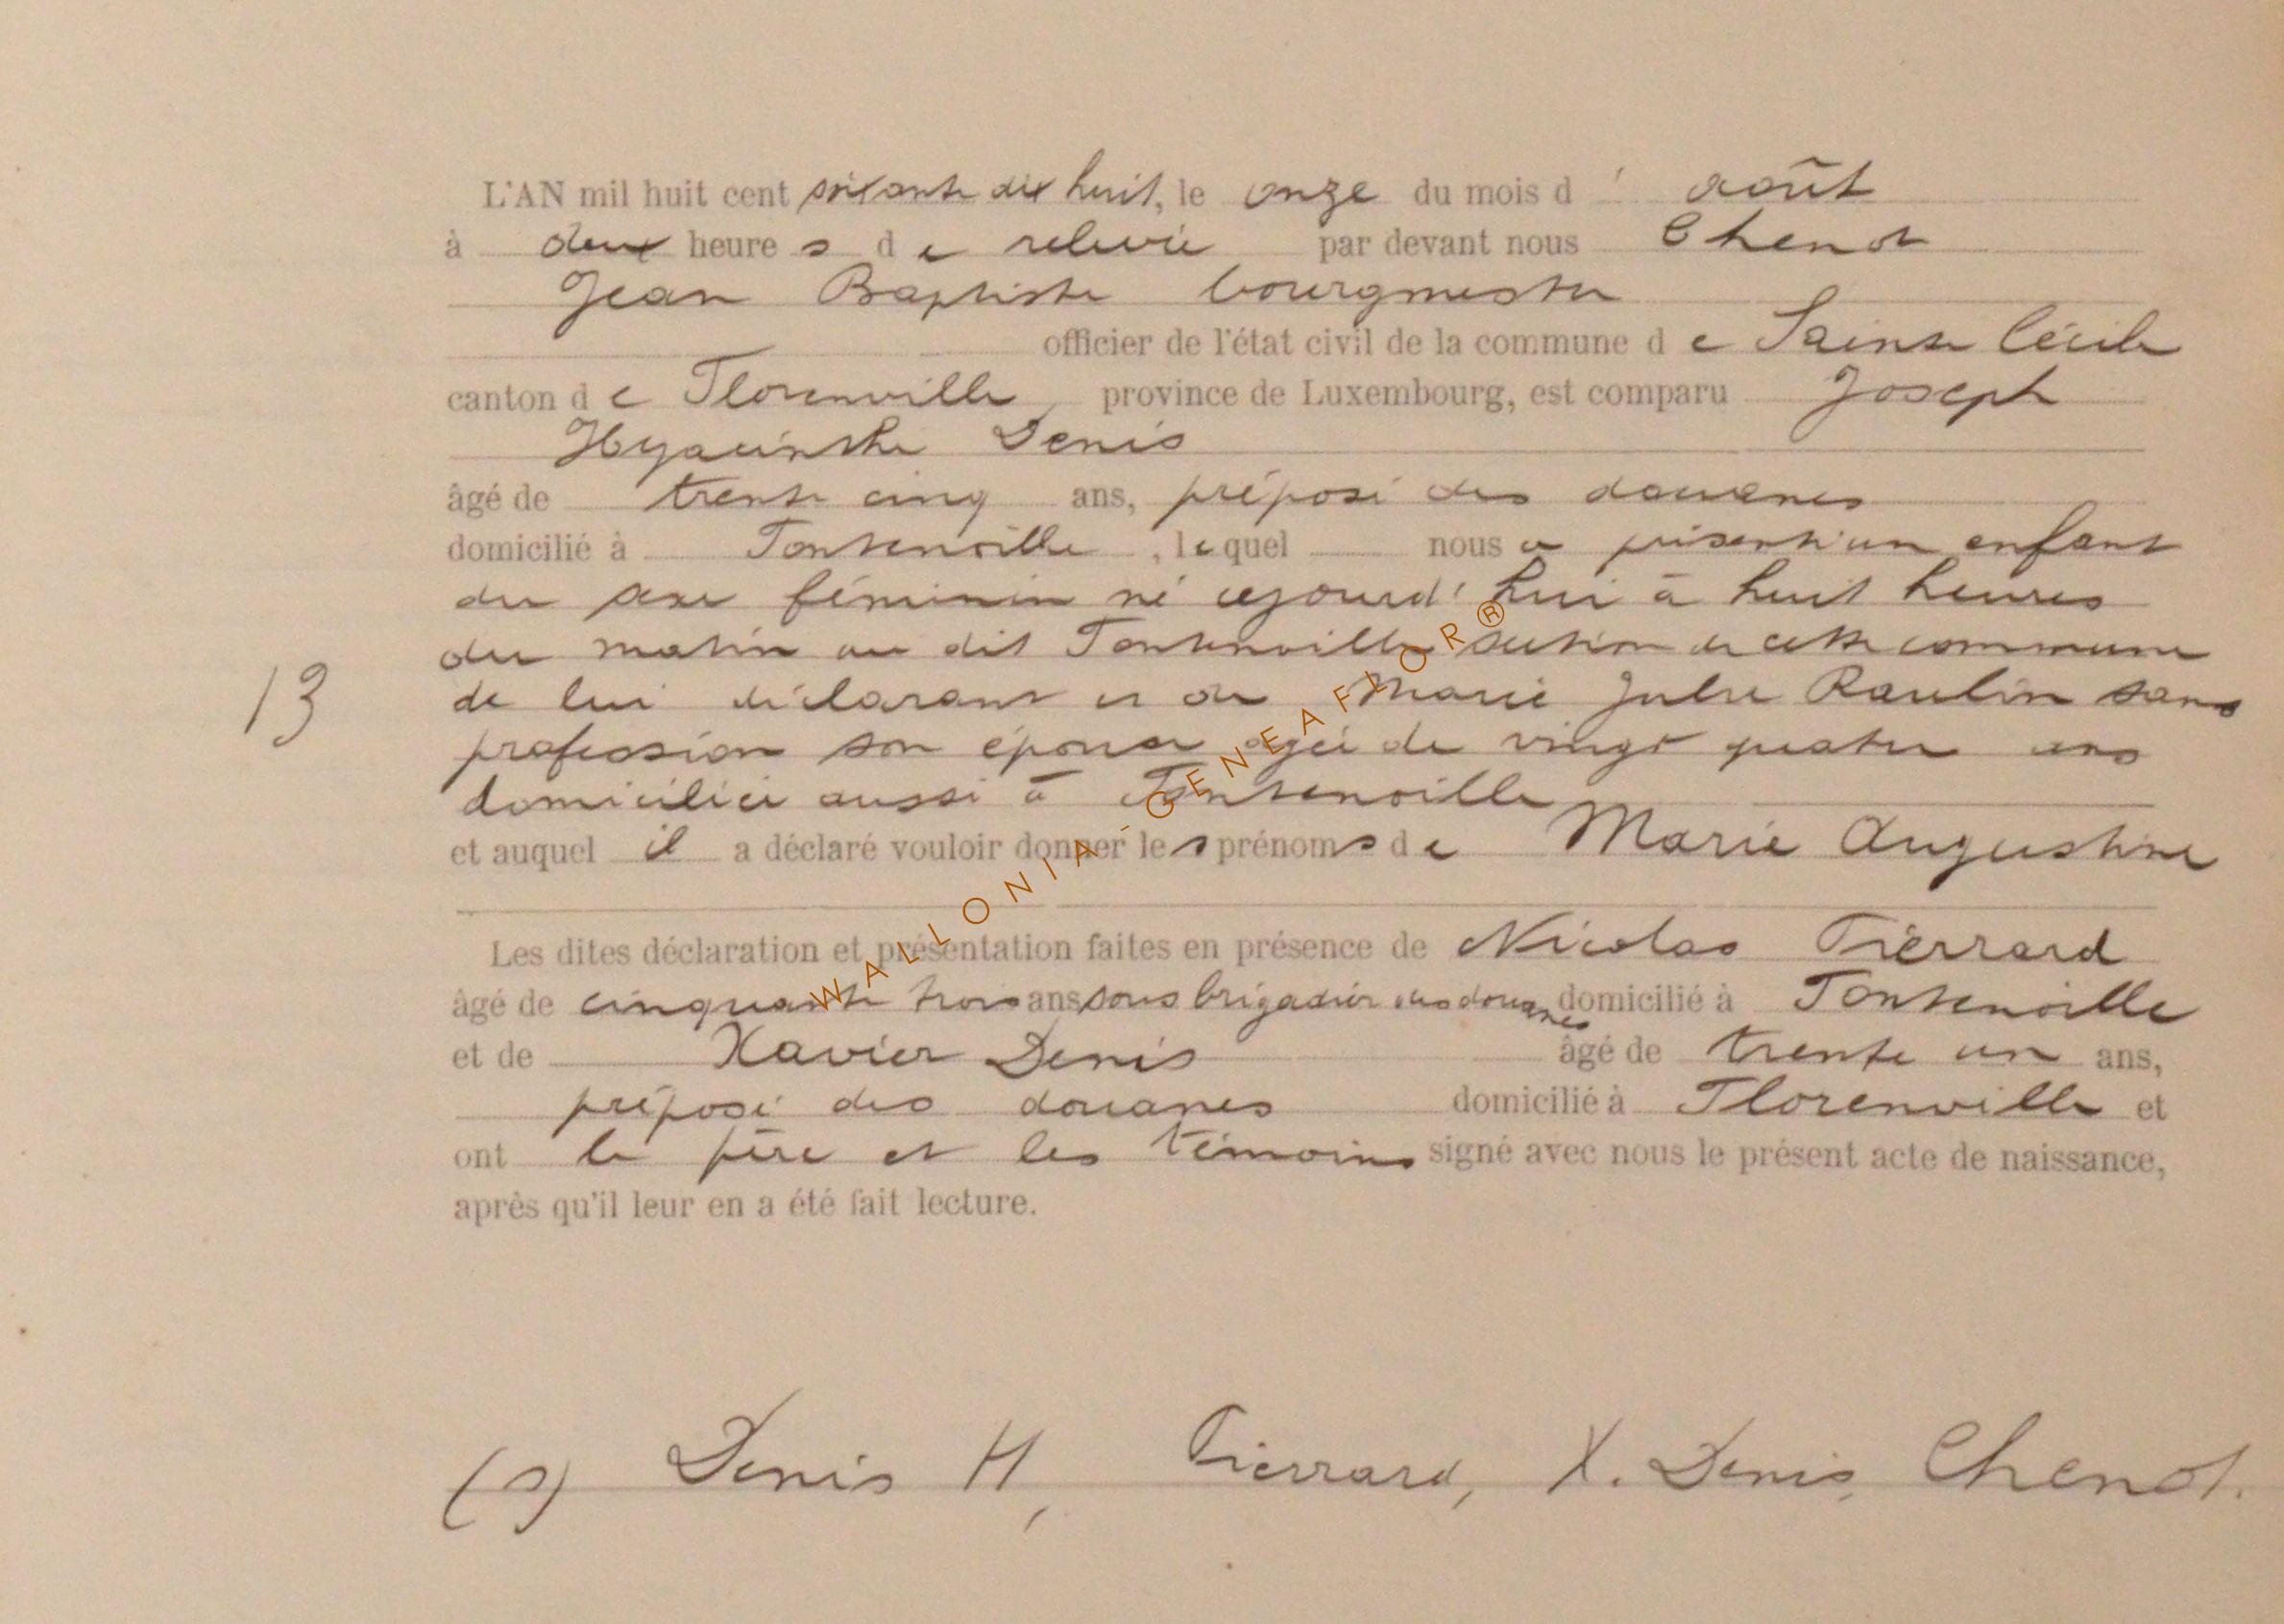 L'AN mil huit cent soixante dix huit, le onze du mois d' août
à deux heures de relevée par devant nous Chenot
Jean Baptiste bourgmestre
officier de l'état civil de la commune de Sainte Cécile
canton de Florenville, province de Luxembourg, est comparu Joseph
Hyacinthe Denis
âgé de trente cinq ans, préposé des douanes
domicilié à Fontenoille, lequel nous a présenté un enfant
du sexe féminin né cejourd'hui à huit heures
du matin au dit Fontenoille section de cette commune
de lui déclarant et de Marie Julie Raulin sans
profession son épouse agée de vingt quatre ans
domiciliée aussi à Fontenoille
13
et auquel il a déclaré vouloir donner les prénoms de Marie Augustine
Les dites déclaration et présentation faites en présence de Nicolas Pierrard
âgé de cinquante trois ans, sous brigadier des douanes domicilié à Fontenoille
et de Xavier Denis âgé de trente un ans,
préposé des douanes domicilié à Florenville et
ont le père et les témoins signé avec nous le présent acte de naissance,
après qu'il leur en a été fait lecture.
(s) Denis H, Pierrard, X. Denis, Chenot.
WALLONIA-GENEAFLOR®